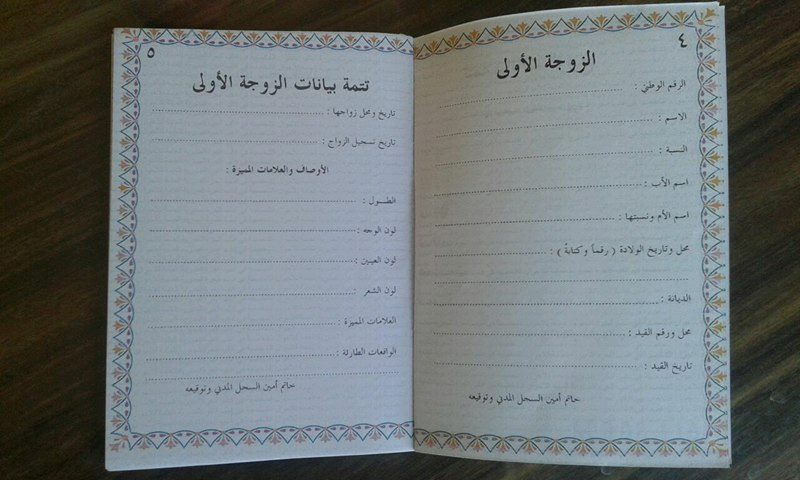 ٤
الزوجة الأولى
الرقم الوطني :
الاسم :
النسبة :
اسم الأب :
اسم الأم ونسبتها :
محل وتاريخ الولادة ( رقماً وكتابةً ) :
الديانة :
محل ورقم القيد :
تاريخ القيد :
خاتم أمين السجل المدني وتوقيعه
٥
تتمة بيانات الزوجة الأولى
تاريخ ومحل زواجها :
تاريخ تسجيل الزواج :
الأوصاف والعلامات المميزة :
الطـول :
لون الوجه :
لون العينين :
لون الشعر :
العلامات المميزة :
الواقعات الطارئة :
خاتم أمين السجل المدني وتوقيعه